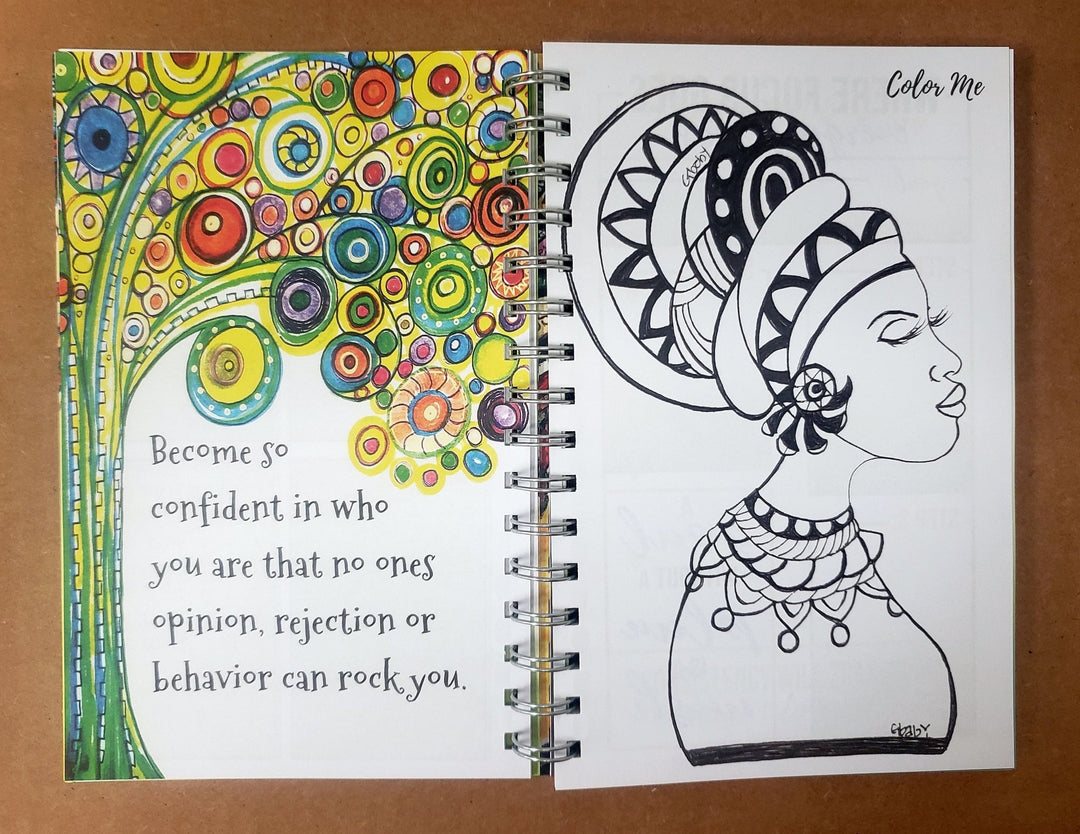 Become so
confident in who
you are that no ones
opinion, rejection or
behavior can rock you.
Color Me
Gbaby
Gbaby